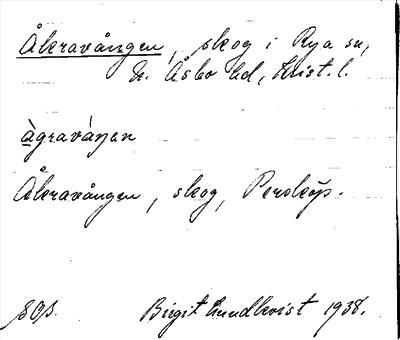 Åkravången, skog i Rya sn,
N. Åsbo hd, Krist. l.
àgraváŋen
Åkravången, skog, Perstorp.
Birgit Lundkvist 1938.